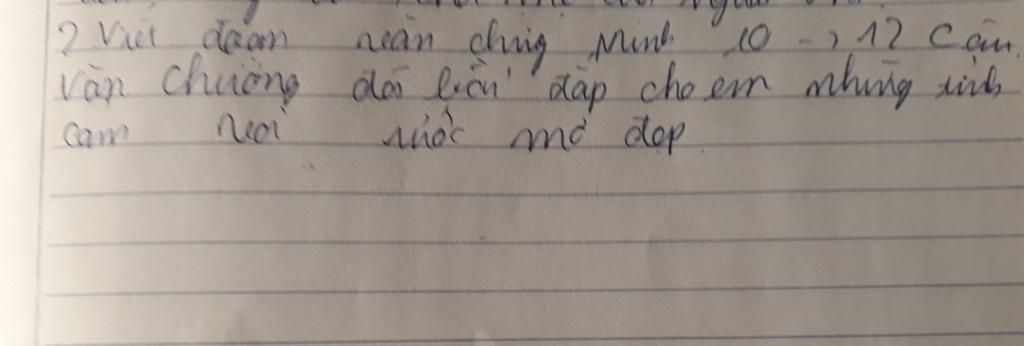 2 Viết đoạn văn chứng Minh 10 -> 12 câu.
Văn chương đã bồi đắp cho em những tình
cảm ước mơ đẹp.